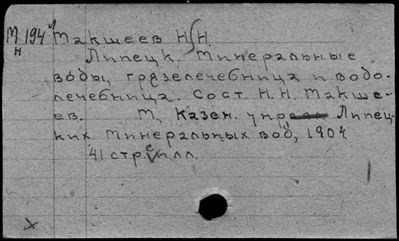 М 194 Макшеев Н.Н.
н
Липецк. Минеральные
воды, грязелечебница и водо-
лечебница. Сост. Н.Н. Макше-
ев. М, Казен. упр Липец-
ких минеральных вод, 1904
41 стр с илл.